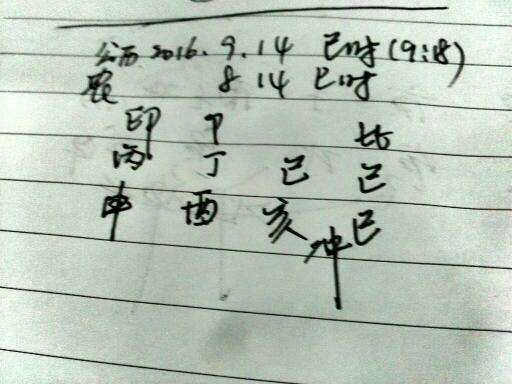 公历 2016.9.14 巳时(9:18)
农 8 14 巳时
印 P 比
丙 丁 己 己
申 酉 亥 冲 巳